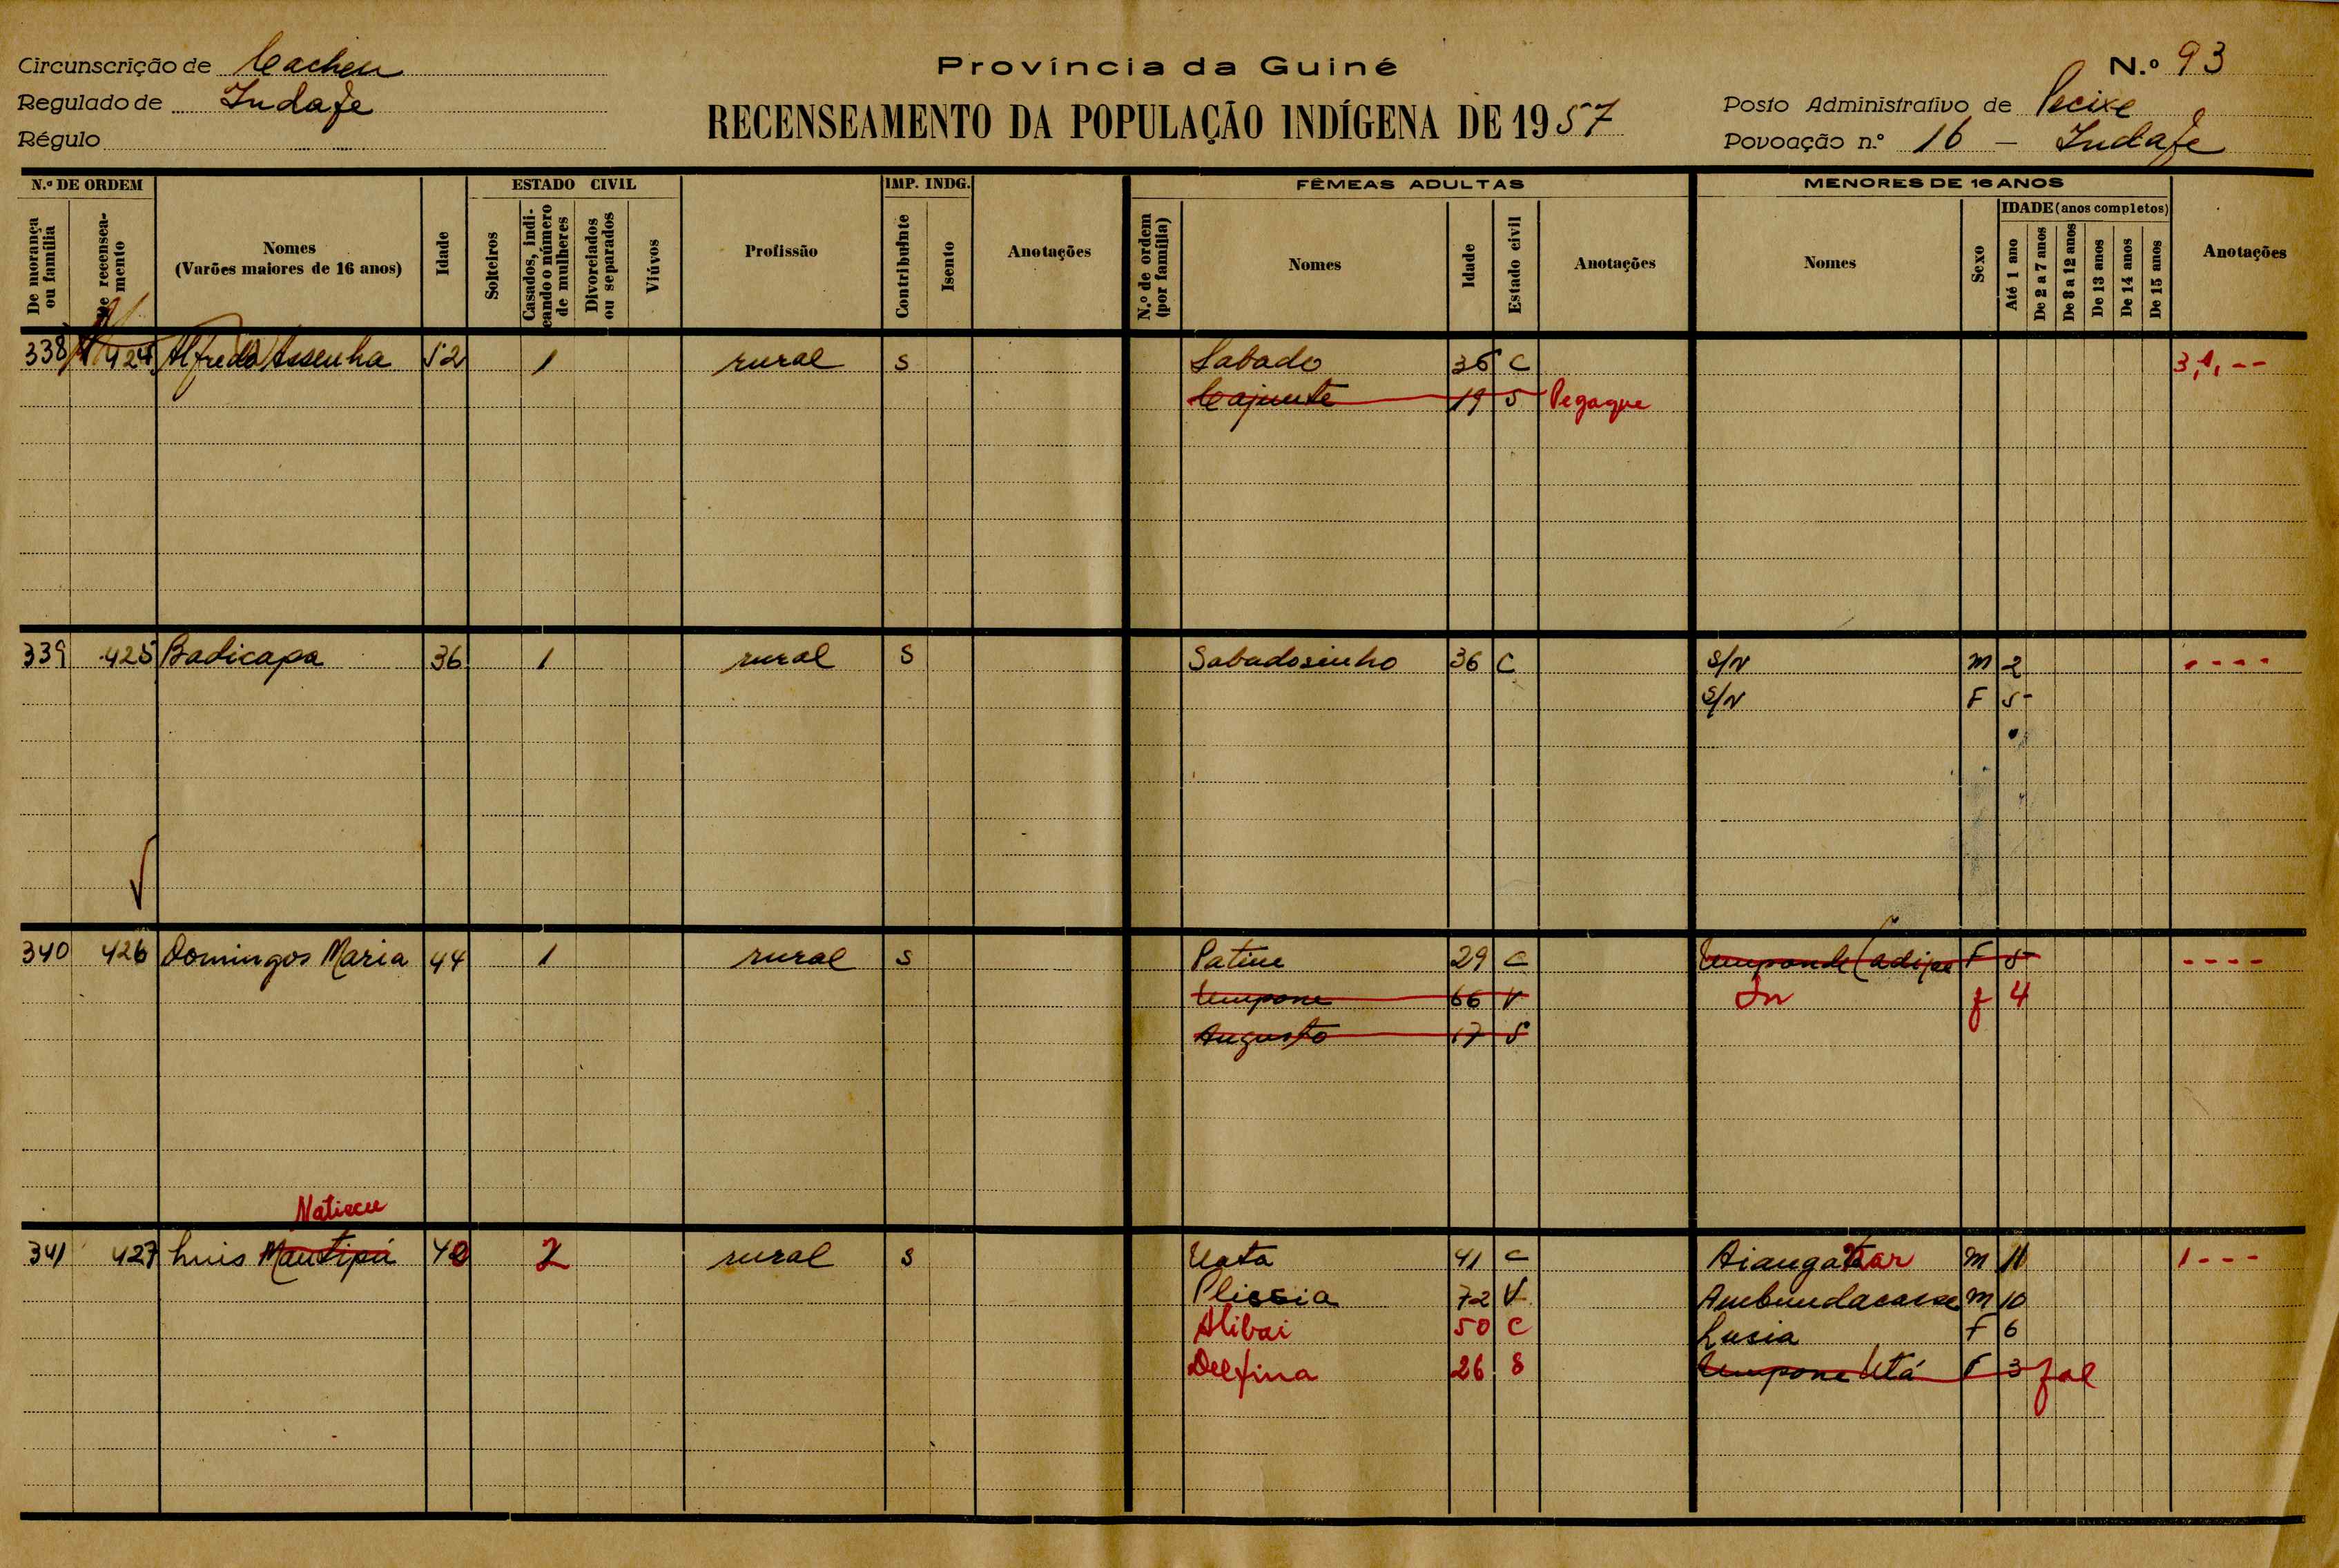 Província da Guiné
Circunscrição de Cacheu
Regulado de Indafe
Régulo
RECENSEAMENTO DA POPULAÇÃO INDÍGENA DE 1957
N.º 93
Posto Administrativo de Pecixe
Povoação n.º 16 — Indafe
N.º DE ORDEM
De morança ou família
De recenseamento
Nomes
(Varões maiores de 16 anos)
Idade
ESTADO CIVIL
Solteiros
Casados, indicando o número de mulheres
Divorciados ou separados
Viúvos
Profissão
IMP. INDG.
Contribuinte
Isento
Anotações
FÊMEAS ADULTAS
N.º de ordem (por família)
Nomes
Idade
Estado civil
Anotações
MENORES DE 16 ANOS
Nomes
Sexo
IDADE (anos completos)
Até 1 ano
De 2 a 7 anos
De 8 a 12 anos
De 13 anos
De 14 anos
De 15 anos
Anotações
338 424 Alfredo Assenha 52 1 rural S Sabado 36 C 3,1,--
Cajunte 19 S Pegaque
339 425 Badicapa 36 1 rural S Sabadosinho 36 C S/N M 2 ----
S/N F 5
340 426 Domingos Maria 44 1 rural S Patine 29 C Umponde Cadipe F 5 ----
Umpone 66 V Sn f 4
Augusto 17 S
341 427 Luis Mantipá 42 2 rural S Uata 41 C M 11 1---
Plissia 72 V Ambundacasse M 10
Alibai 50 C Lusia F 6
Delfina 26 S Umpone Utá F 3 fal